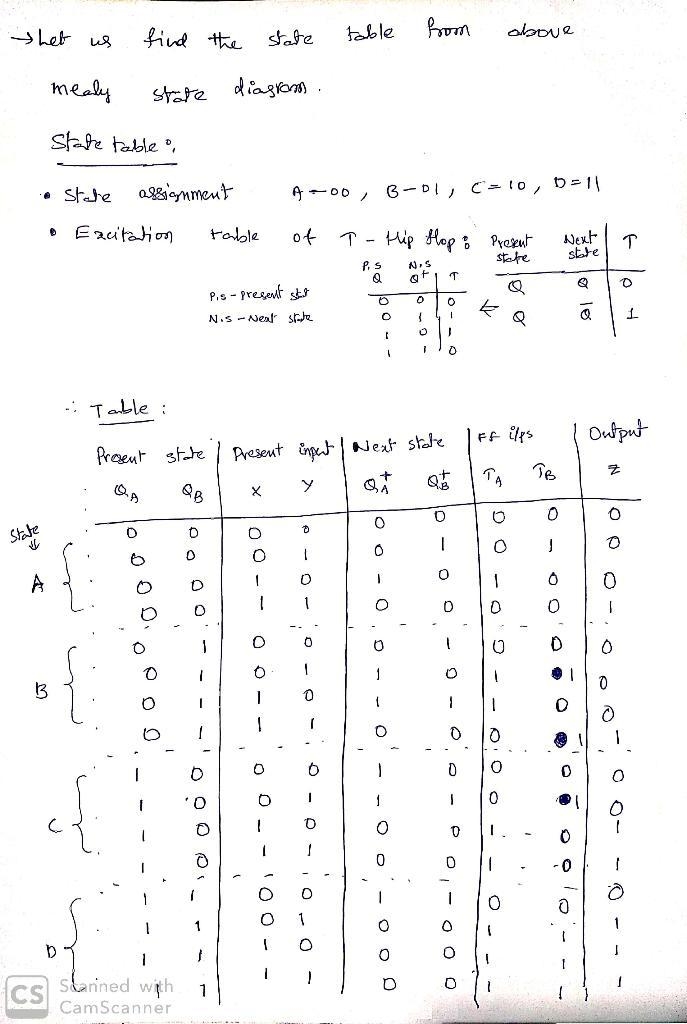 → Let us find the state table from above
mealy state diagram.
State table :
• State assignment A→00, B-01, C=10, D=11
• Excitation table of T-flip flop : Present state Next state T
P.S N.S
Q Q+ T
Q Q 0
P.S - present stat
0 0 0
← Q Q̅ 1
N.S - Next state
0 1 1
1 0 1
1 1 0
∴ Table :
Present state Present input Next state FF i/ps Output
QA QB X Y QA+ QB+ TA TB Z
State
0 0 0 0 0 0 0 0 0
0 0 0 1 0 1 0 1 0
A 0 0 1 0 1 0 1 0 0
0 0 1 1 0 0 0 0 1
0 1 0 0 0 1 0 0 0
B 0 1 0 1 1 0 1 1 0
0 1 1 0 1 1 1 0 0
0 1 1 1 0 0 0 1 1
1 0 0 0 1 0 0 0 0
1 0 0 1 1 1 0 1 0
C 1 0 1 0 0 0 1 0 1
1 0 1 1 0 0 1 0 1
1 1 0 0 1 1 0 0 0
1 1 0 1 0 0 1 1 1
D 1 1 1 0 0 0 1 1 1
1 1 1 1 0 0 1 1 1
CS Scanned with
CamScanner